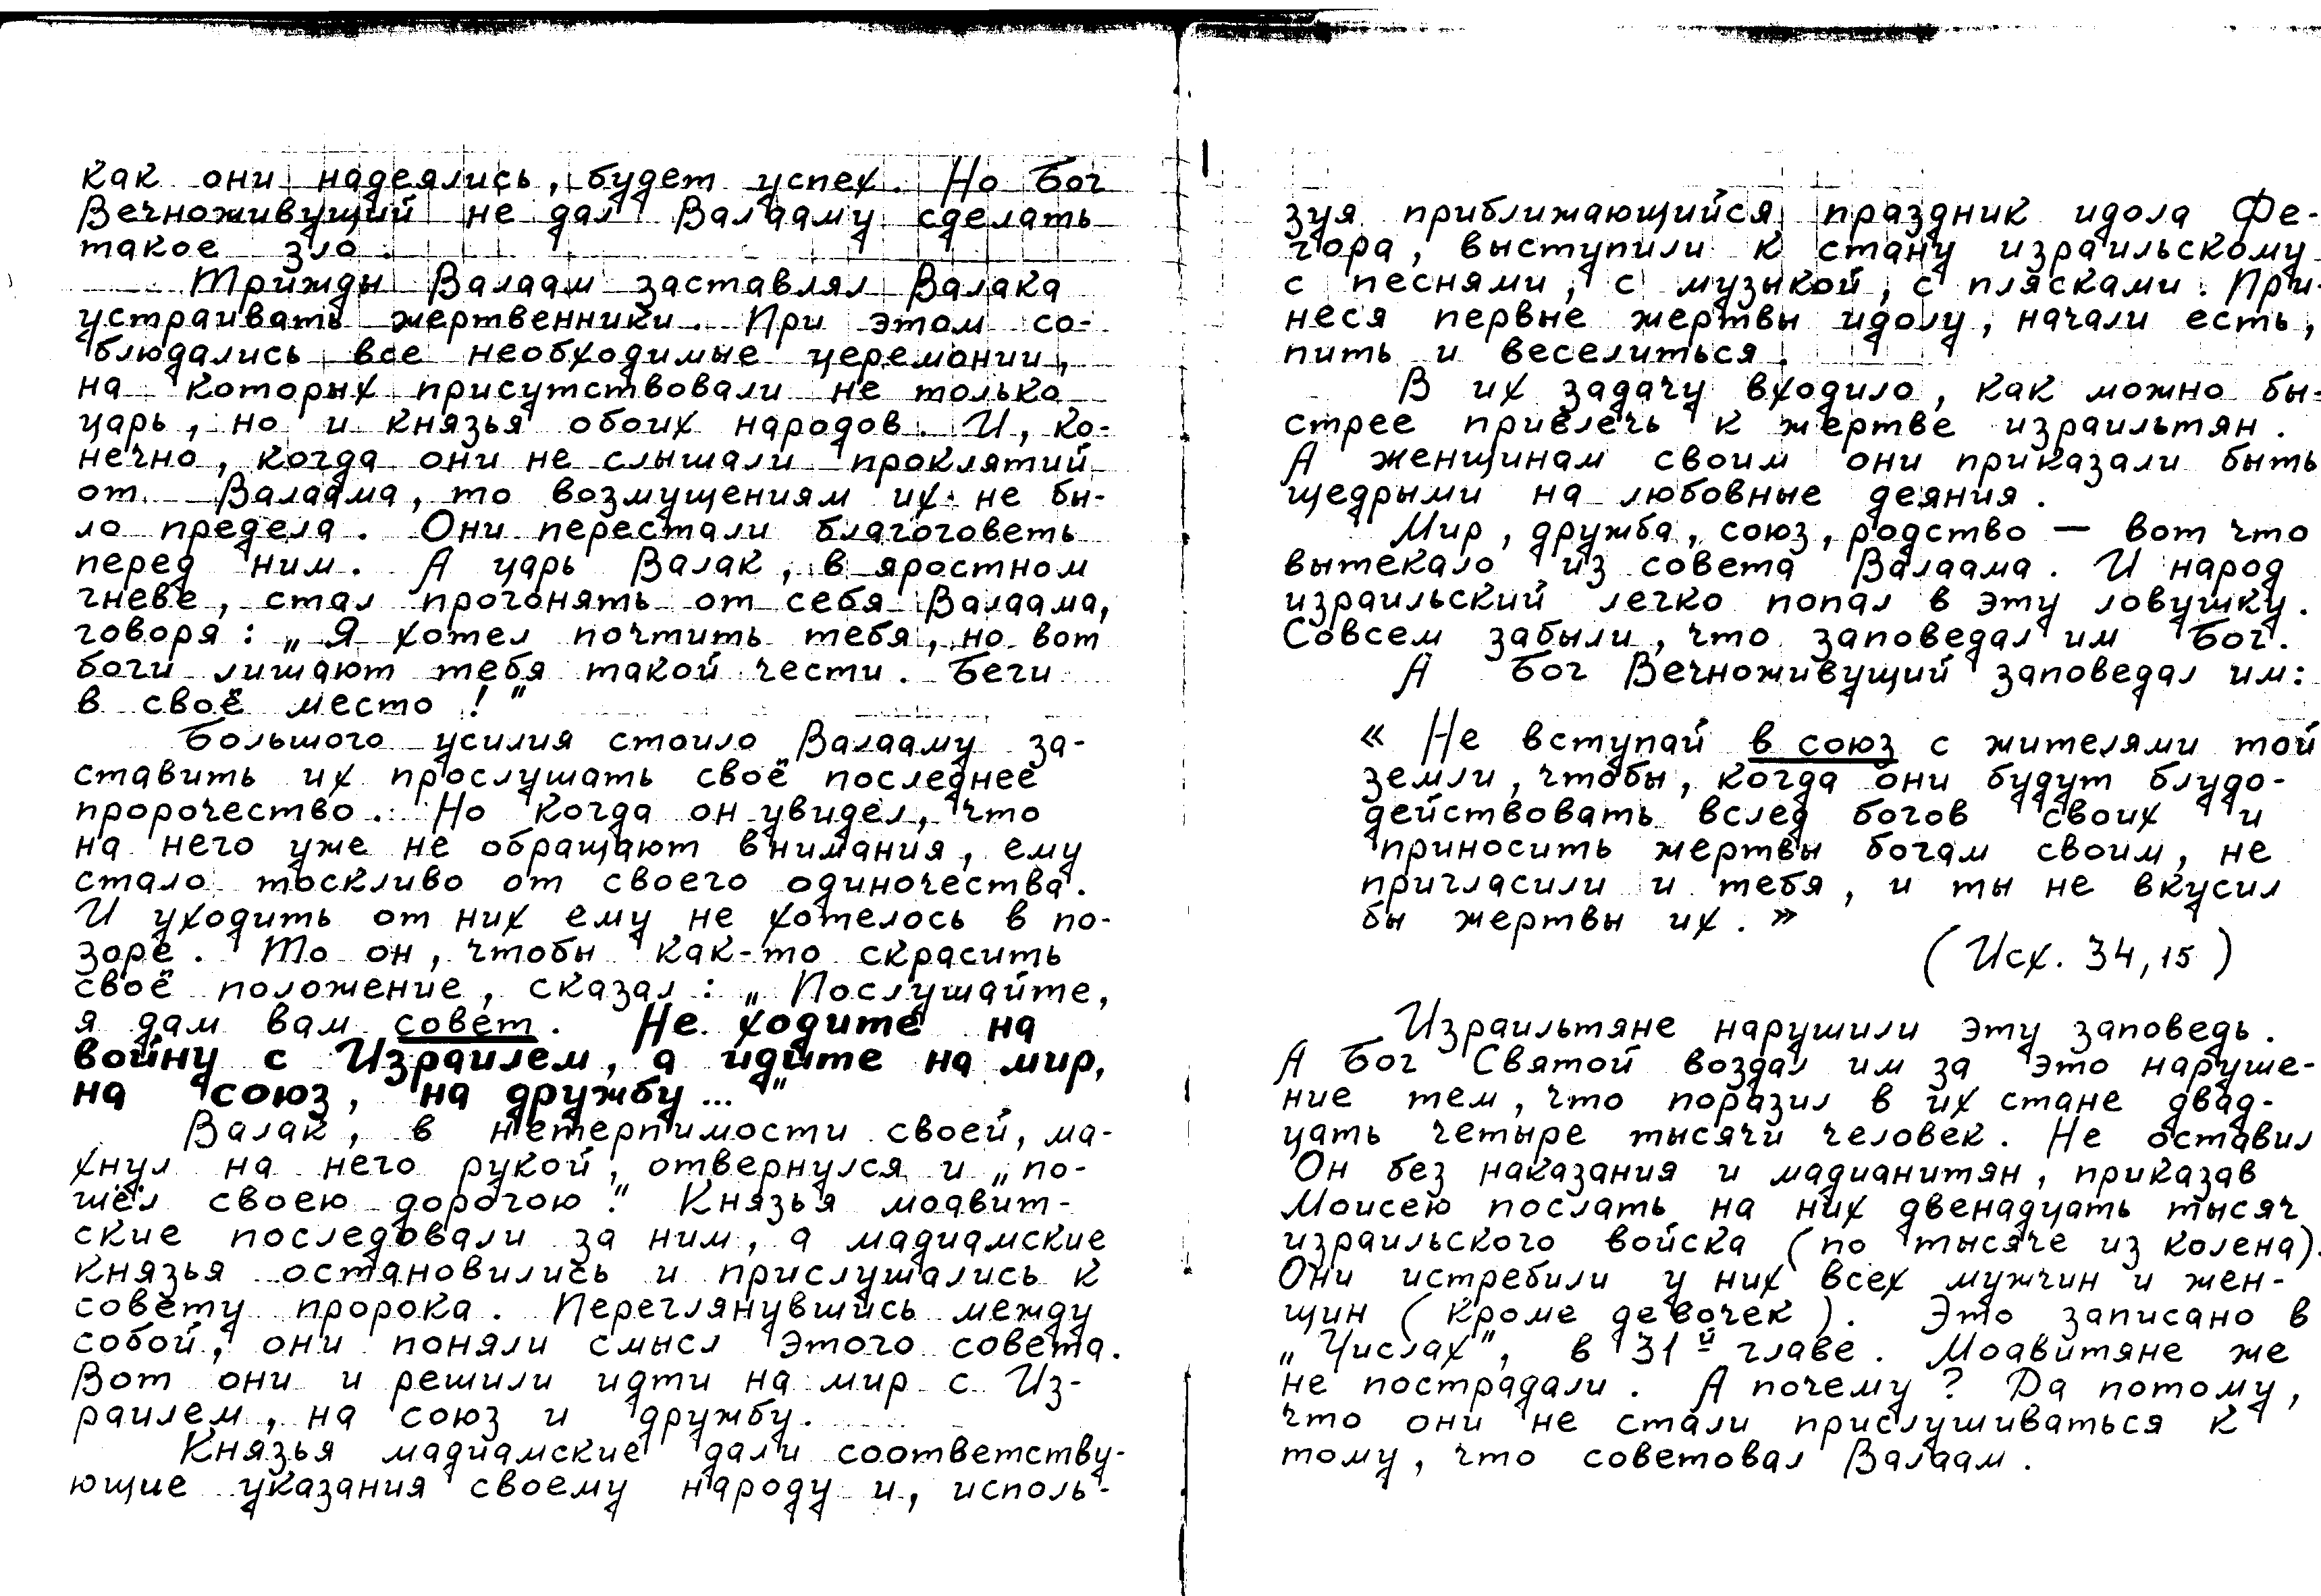 как они надеялись, будет успех. Но Бог
Вечноживущий не дал Валааму сделать
такое зло.
Трижды Валаам заставлял Валака
устраивать жертвенники. При этом со-
блюдались все необходимые церемонии,
на которых присутствовали не только
царь, но и князья обоих народов. И, ко-
нечно, когда они не слышали проклятий
от Валаама, то возмущениям их не бы-
ло предела. Они перестали благоговеть
перед ним. А царь Валак, в яростном
гневе, стал прогонять от себя Валаама,
говоря: „Я хотел почтить тебя, но вот
боги лишают тебя такой чести. Беги
в своё место!"
Большого усилия стоило Валааму за-
ставить их прослушать своё последнее
пророчество. Но когда он увидел, что
на него уже не обращают внимания, ему
стало тоскливо от своего одиночества.
И уходить от них ему не хотелось в по-
зоре. То он, чтобы как-то скрасить
своё положение, сказал: „Послушайте,
я дам вам совет. Не ходите на
войну с Израилем, а идите на мир,
на союз, на дружбу..."
Валак, в нетерпимости своей, ма-
хнул на него рукой, отвернулся и „по-
шёл своею дорогою". Князья моавит-
ские последовали за ним, а мадиамские
князья остановились и прислушались к
совету пророка. Переглянувшись между
собой, они поняли смысл этого совета.
Вот они и решили идти на мир с Из-
раилем, на союз и дружбу.
Князья мадиамские дали соответству-
ющие указания своему народу и, исполь-
зуя приближающийся праздник идола Фе-
гора, выступили к стану израильскому
с песнями, с музыкой, с плясками. При-
неся первые жертвы идолу, начали есть,
пить и веселиться.
В их задачу входило, как можно бы-
стрее привлечь к жертве израильтян.
А женщинам своим они приказали быть
щедрыми на любовные деяния.
Мир, дружба, союз, родство — вот что
вытекало из совета Валаама. И народ
израильский легко попал в эту ловушку.
Совсем забыли, что заповедал им Бог.
А Бог Вечноживущий заповедал им:
« Не вступай в союз с жителями той
земли, чтобы, когда они будут блудо-
действовать вслед богов своих и
приносить жертвы богам своим, не
пригласили и тебя, и ты не вкусил
бы жертвы их. »
(Исх. 34,15)
Израильтяне нарушили эту заповедь.
А Бог Святой воздал им за это наруше-
ние тем, что поразил в их стане двад-
цать четыре тысячи человек. Не оставил
Он без наказания и мадианитян, приказав
Моисею послать на них двенадцать тысяч
израильского войска (по тысяче из колена).
Они истребили у них всех мужчин и жен-
щин (кроме девочек). Это записано в
„Числах", в 31й главе. Моавитяне же
не пострадали. А почему? Да потому,
что они не стали прислушиваться к
тому, что советовал Валаам.